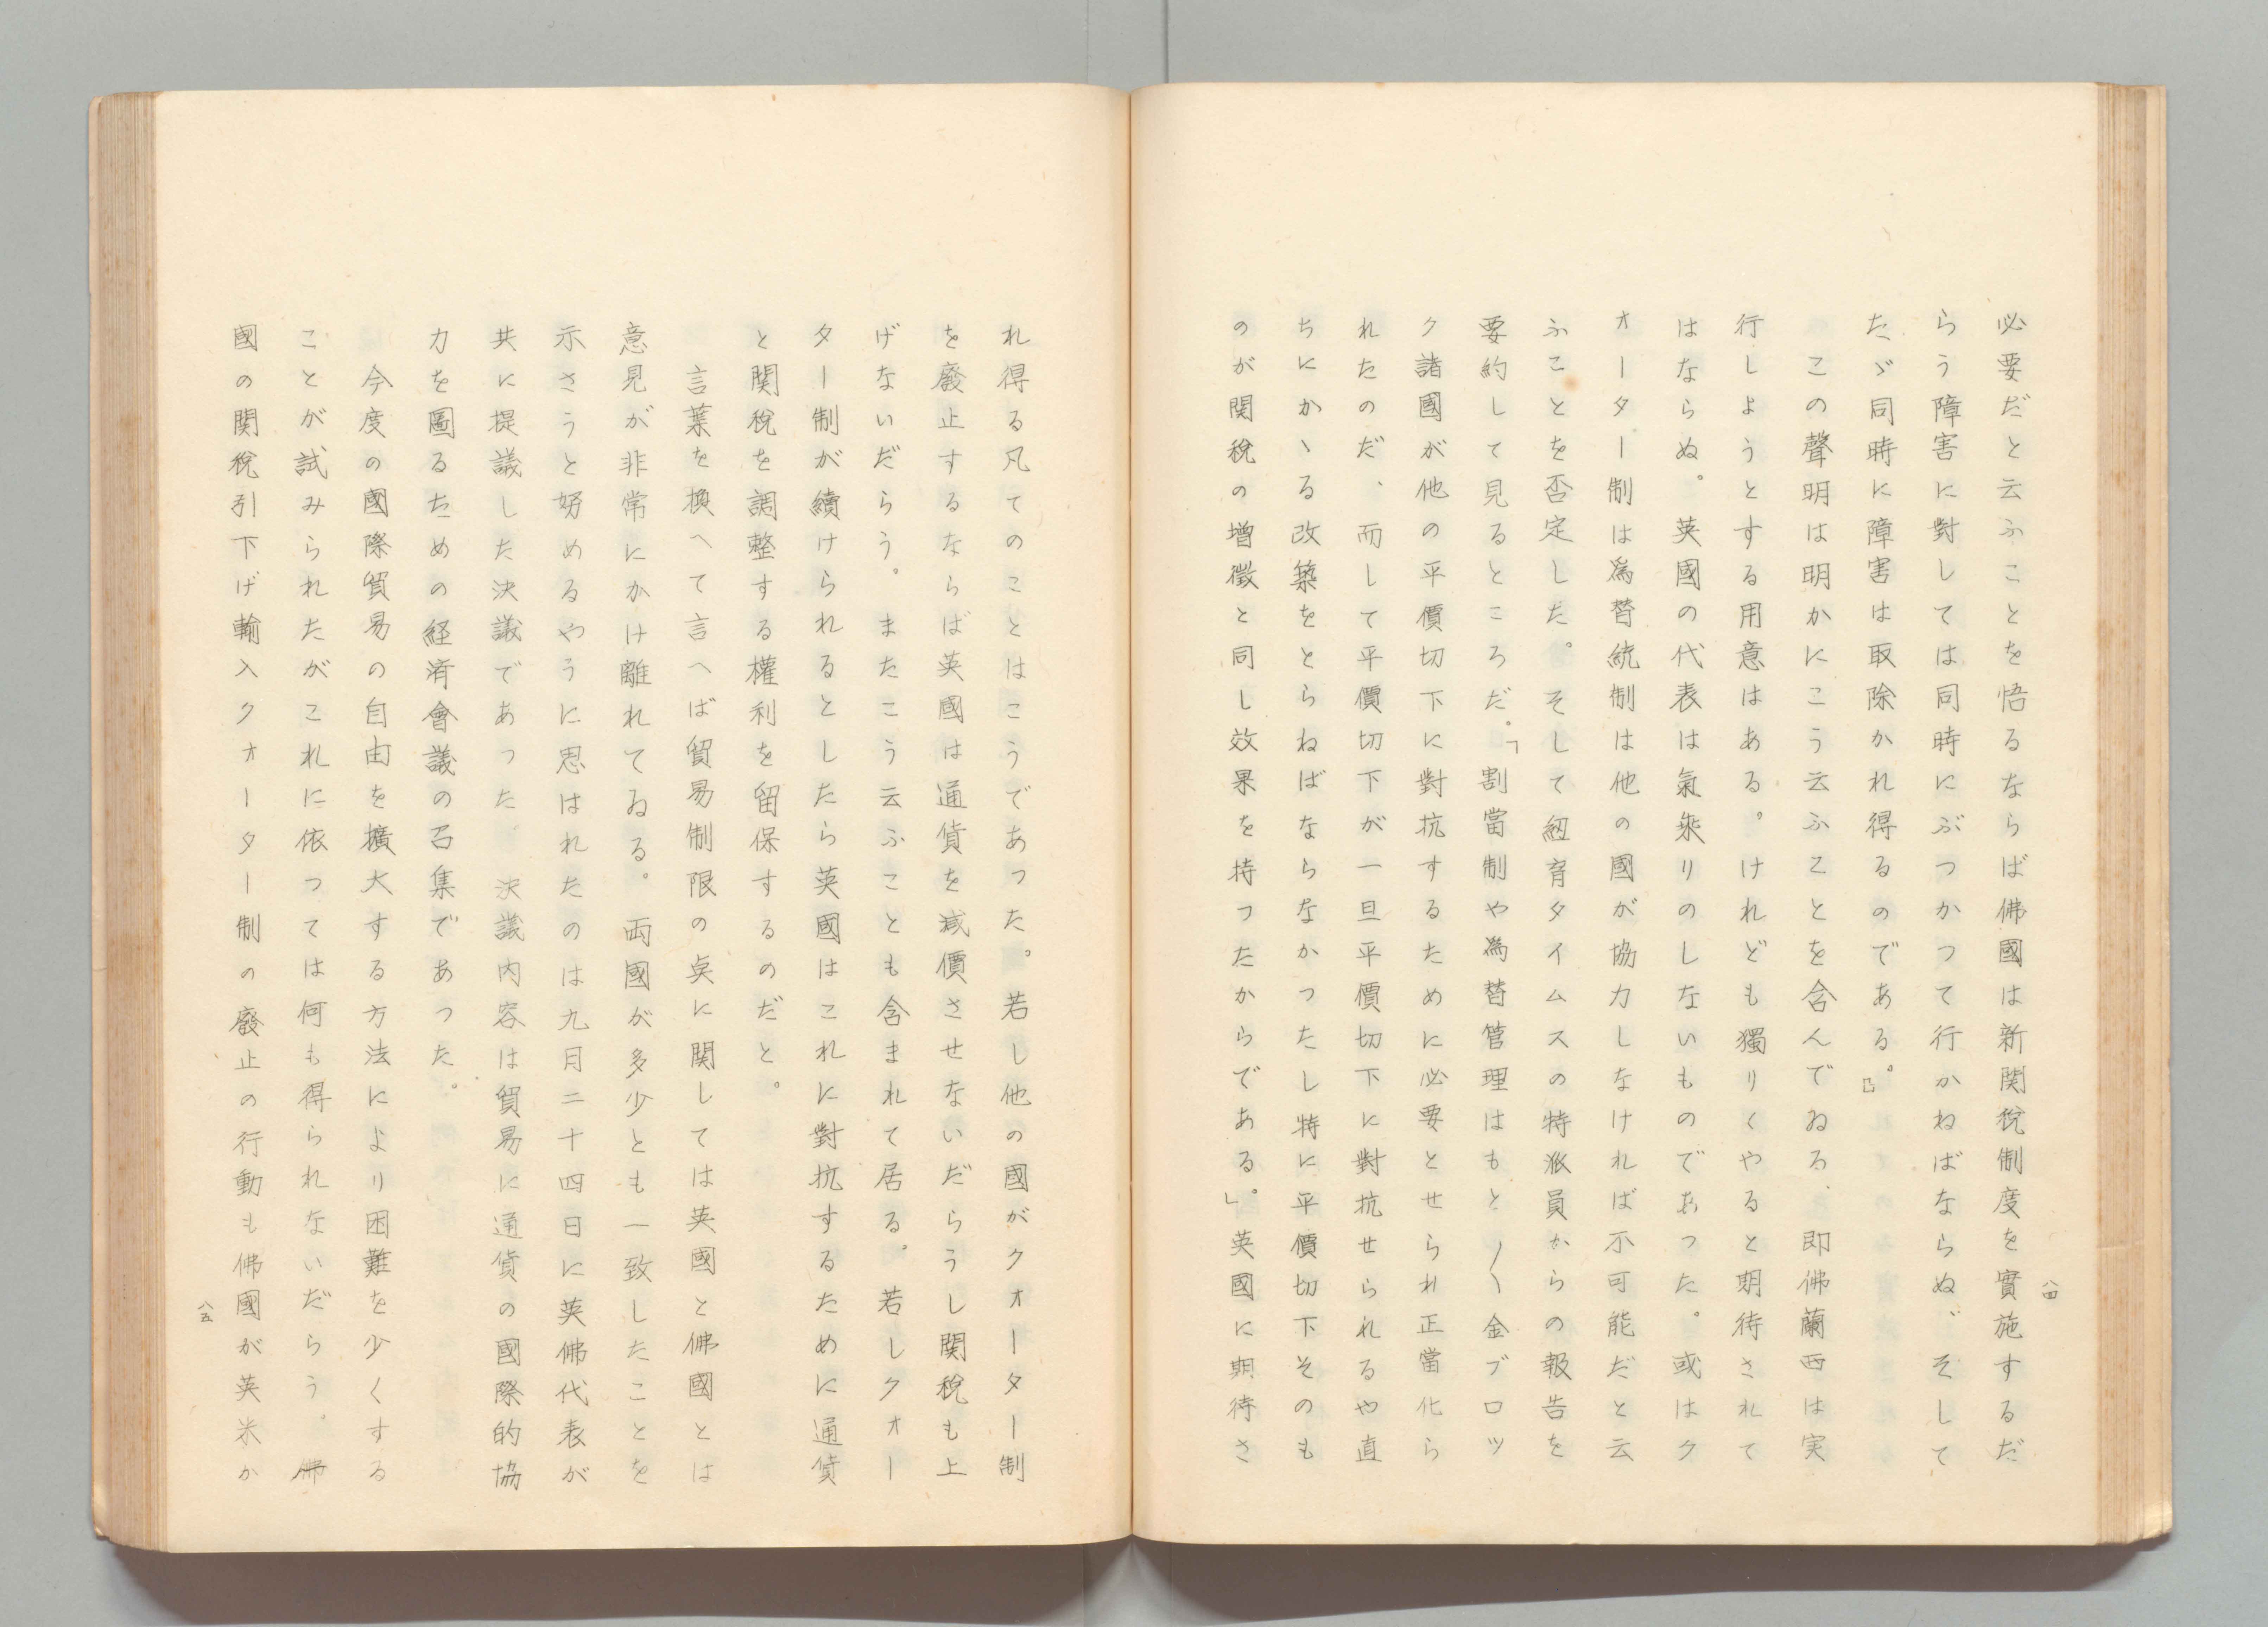 必要だと云ふことを悟るならば佛國は新関稅制度を實施するだ
らう障害に對しては同時にぶつかつて行かねばならぬ、そして
たゞ同時に障害は取除かれ得るのである。』
この聲明は明かにこう云ふことを含んでゐる、即佛蘭西は実
行しようとする用意はある。けれども獨りくやると期待されて
はならぬ。英國の代表は氣乘りのしないものであった。或はク
オーター制は爲替統制は他の國が協力しなければ不可能だと云
ふことを否定した。そして紐育タイムスの特派員からの報告を
要約して見るところだ。「割當制や爲替管理はもと〳〵金ブロツ
ク諸國が他の平價切下に對抗するために必要とせられ正當化ら
れたのだ、而して平價切下が一旦平價切下に對抗せられるや直
ちにかゝる改築をとらねばならなかつたし特に平價切下そのも
のが関稅の増徴と同し效果を持つたからである。」英國に期待さ
八四
れ得る凡てのことはこうであつた。若し他の國がクオーター制
を廢止するならば英國は通貨を減價させないだらうし関稅も上
げないだらう。またこう云ふことも含まれて居る。若しクオー
ター制が續けられるとしたら英國はこれに對抗するために通貨
と関稅を調整する權利を留保するのだと。
言葉を換へて言へば貿易制限の奌に関しては英國と佛國とは
意見が非常にかけ離れてゐる。両國が多少とも一致したことを
示さうと努めるやうに思はれたのは九月二十四日に英佛代表が
共に提議した決議であつた 決議内容は貿易に通貨の國際的協
力を圖るための経済會議の召集であつた。
今度の國際貿易の自由を擴大する方法により困難を少くする
ことが試みられたがこれに依つては何も得られないだらう。佛
國の関稅引下げ輸入クオーター制の廢止の行動も佛國が英米か
八五